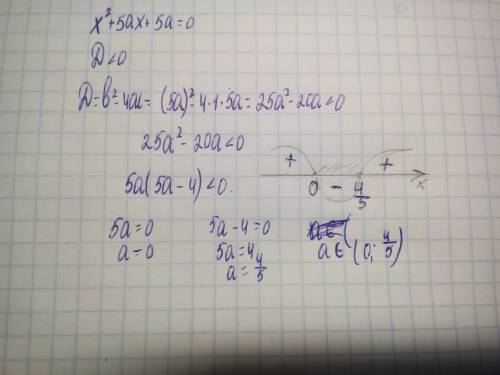 x²+5ax+5a=0
D<0
D=b²-4ac=(5a)²-4·1·5a=25a²-20a<0
25a²-20a<0
5a(5a-4)<0.
+ 0 - 4/5 + x
5a=0 5a-4=0
a=0 5a=4 a=4/5
a∈(0; 4/5)